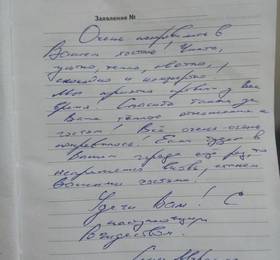 Заявление №
Очень понравилось в
Вашем хостеле! Чисто,
уютно, тепло, светло,
спокойно и комфортно.
Мы приятно провели у Вас
время. Спасибо также за
Ваше тёплое отношение к
гостям! Всё очень-очень
понравилось! Если будем в
Вашем городе ещё раз, то
непременно вновь станем
Вашими гостями.
Удачи Вам! С
наступающим
Рождеством.